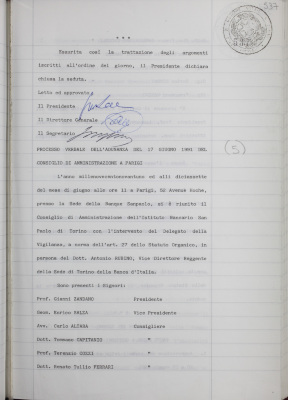 537
* * *
Esaurita così la trattazione degli argomenti
iscritti all'ordine del giorno, il Presidente dichiara
chiusa la seduta.
Letto ed approvato
Il Presidente
Il Direttore Generale
Il Segretario
(5)
PROCESSO VERBALE DELL'ADUNANZA DEL 17 GIUGNO 1991 DEL
CONSIGLIO DI AMMINISTRAZIONE A PARIGI
L'anno millenovecentonovantuno ed alli diciassette
del mese di giugno alle ore 11 a Parigi, 52 Avenue Hoche,
presso la Sede della Banque Sanpaolo, si è riunito il
Consiglio di Amministrazione dell'Istituto Bancario San
Paolo di Torino con l'intervento del Delegato della
Vigilanza, a norma dell'art. 27 dello Statuto Organico, in
persona del Dott. Antonio Vice Direttore Reggente
della Sede di Torino della Banca d'Italia.
Sono presenti i Signori:
Prof. Gianni ZANDANO Presidente
Sen. Enrico SALZA Vice Presidente
Avv. Carlo Consigliere
Dott. Tommaso CAPITANIO "
Prof. Terenzio COZZI "
Dott. Renato Tullio FERRARI "